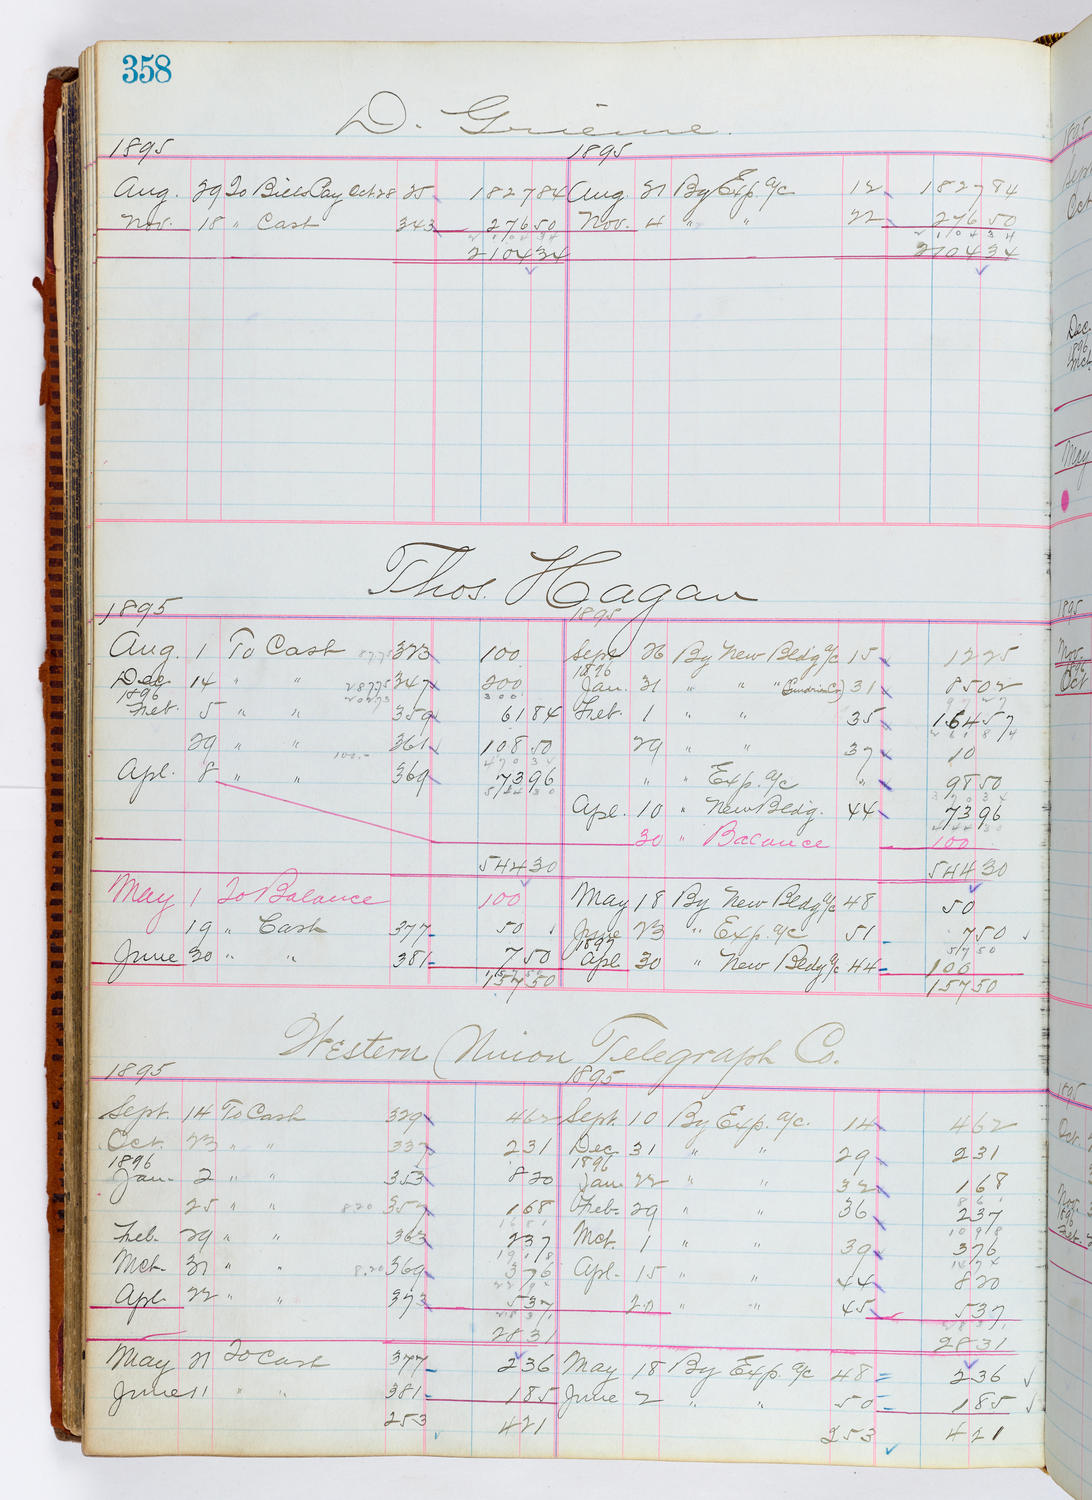 358
D. Grieme.
1895 1895
Aug. 29 To Bills Pay Oct 28 25 1827 84 Aug 21 By Exp. a/c 12 1827 84
Nov. 18 " Cash 343 276 50 Nov. 4 " " 22 276 50
2104 34 2104 34
2104 34 2104 34
Thos. Hagan
1895 1895
Aug. 1 To Cash 8775 323 100 Sept 26 By New Bldg a/c 15 12 25
Dec 14 " " 28775 347 200 1896 Jan. 31 " " " 31 85 02
1896 300 97 27
Feb. 5 " " 359 61 84 Feb. 1 " " 35 164 57
29 " " 361 108 50 29 " " 37 10
100.- 470 34
Apl. 8 " " 369 73 96 " " Exp. a/c " 98 50
544 30 370 34
Apl. 10 " New Bldg. 44 73 96
444 30
30 " Balance 100
544 30 544 30
May 1 To Balance 100 May 18 By New Bldg a/c 48 50
19 " Cash 377 50 June 23 " Exp. a/c 51 7 50
1897 57 50
June 30 " " 381 7 50 Apl 30 " New Bldg a/c 44 100
157 50 157 50
Western Union Telegraph Co.
1895 1895
Sept. 14 To Cash 329 4 62 Sept. 10 By Exp. a/c. 14 4 62
Oct. 23 " " 337 2 31 Dec 31 " " 29 2 31
1896 1896
Jan. 2 " " 353 8 20 Jan. 22 " " 32 1 68
8 61
25 " " 820 357 1 68 Feb. 29 " " 36 2 37
16 81 10 98
Feb. 29 " " 363 2 37 Mct. 1 " " 39 3 76
19 18 14 74
Mct. 31 " " 8.20 369 3 76 Apl. 15 " " 44 8 20
Apl. 22 " " 373 5 37 20 " " 45 5 37
28 31 28 31
28 31 28 31
May 21 To Cash 377 2 36 May 18 By Exp. a/c 48 2 36
June 11 " " 381 1 85 June 2 " " 50 1 85
253 4 21 253 4 21